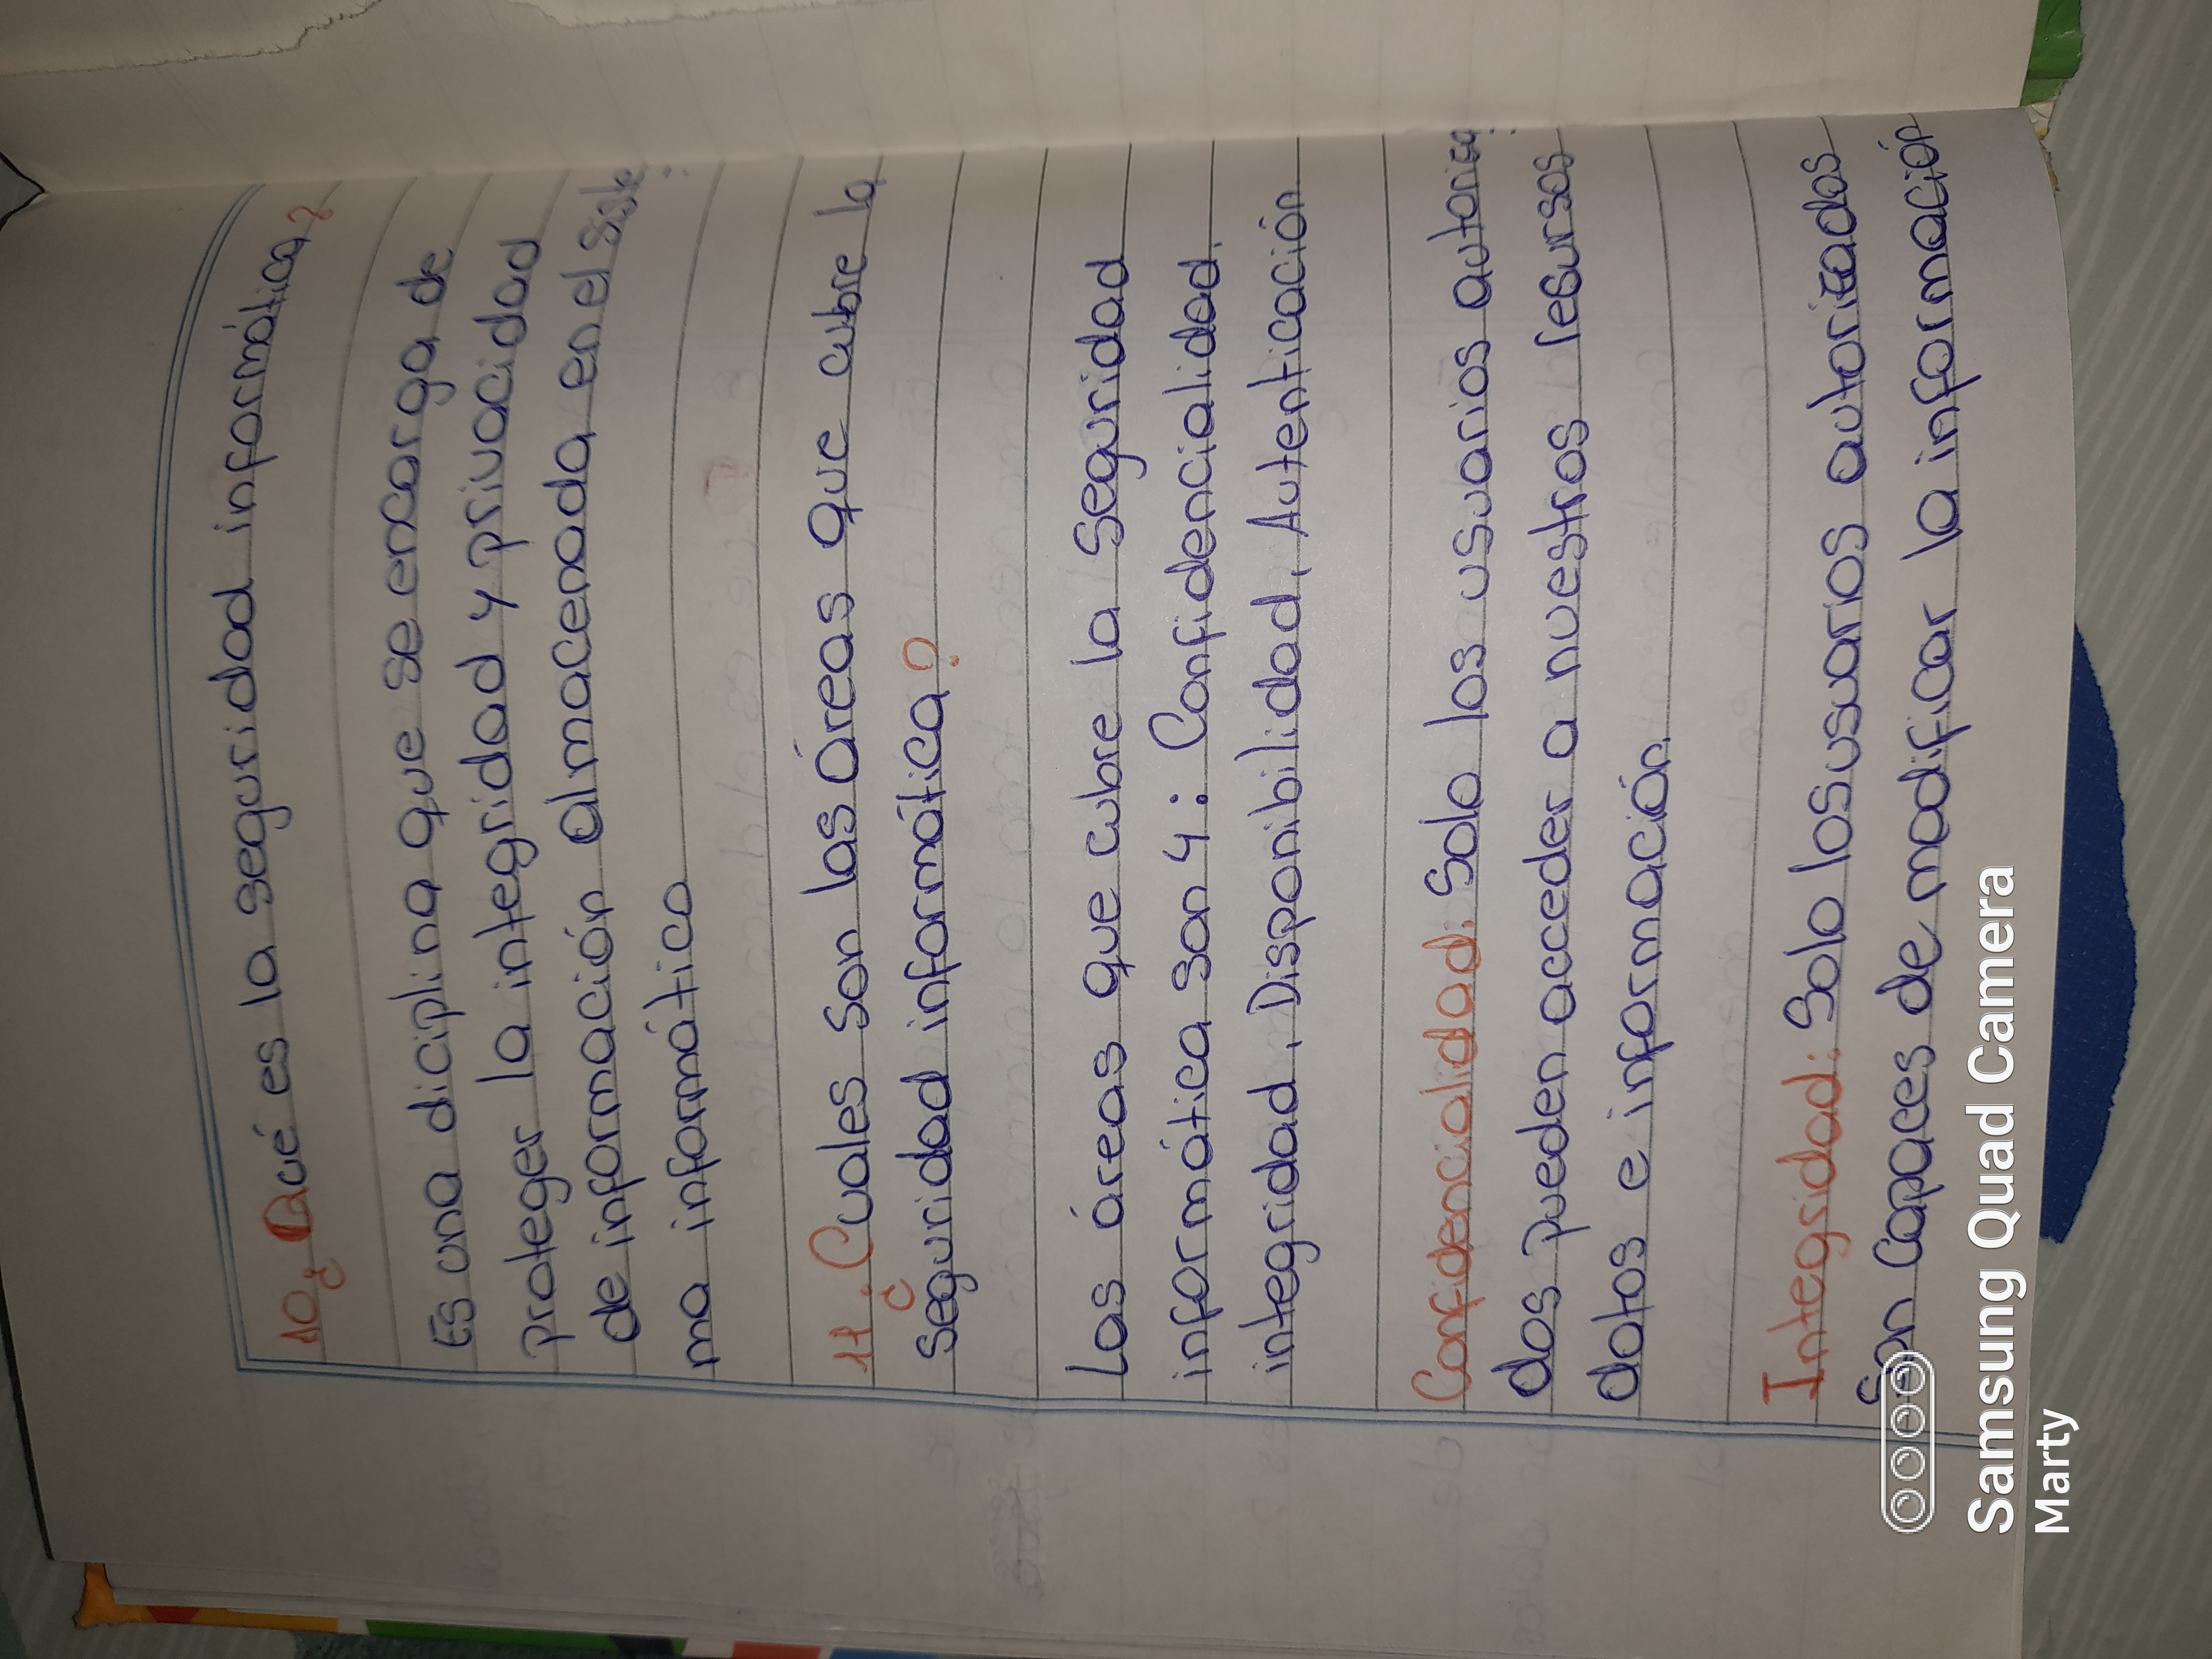 10¿Qué es la seguridad informática?
Es una diciplina que se encarga de
proteger la integridad y privacidad
de información almacenada en el siste
ma informático
11. ¿Cuales son las áreas que cubre la
seguridad informática?
Las áreas que cubre la seguridad
informática son 4: Confidencialidad,
integridad, Disponibilidad, Autenticación
Confidencialidad: Solo los usuarios autoriza
dos pueden acceder a nuestros resursos
datos e información.
Integridad: Solo los usuarios autorizados
Son capaces de modificar la información
Samsung Quad Camera
Marty